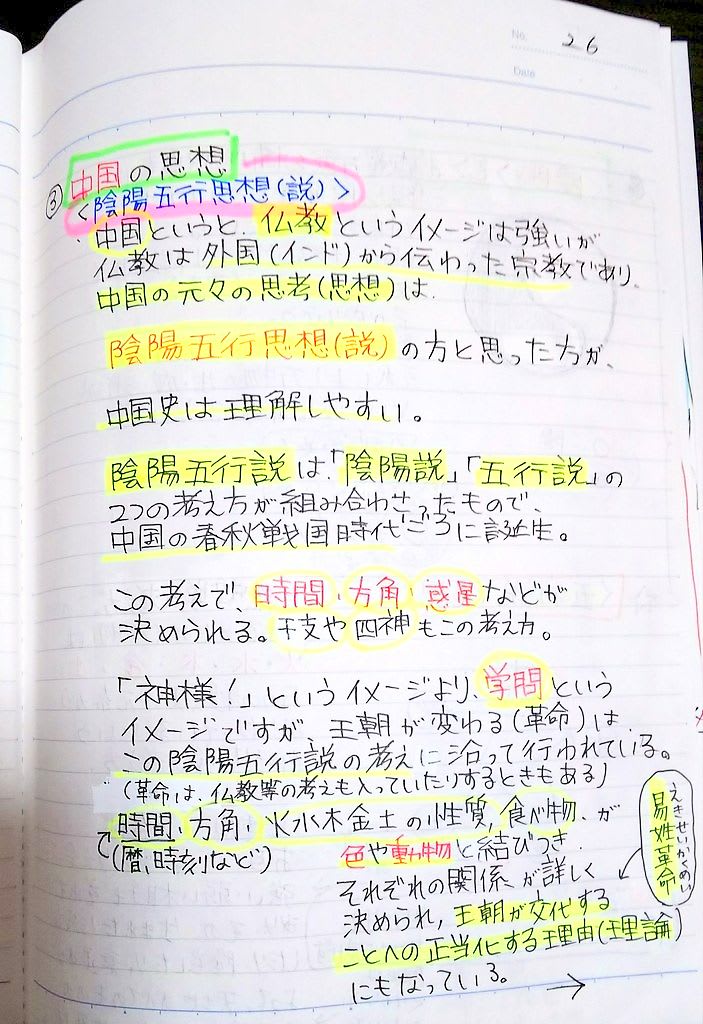 No. 26
Date
③ 中国の思想
<陰陽五行思想(説)>
・中国というと、仏教というイメージは強いが
仏教は外国(インド)から伝わった宗教であり、
中国の元々の思考(思想)は、
陰陽五行思想(説)の方と思った方が、
中国史は理解しやすい。
陰陽五行説は、「陰陽説」「五行説」の
2つの考え方が組み合わさったもので、
中国の春秋戦国時代ごろに誕生。
この考えで、時間・方角・惑星などが
決められる。干支や四神もこの考え方。
「神様!」というイメージより、学問という
イメージですが、王朝が変わる(革命)は、
この陰陽五行説の考えに沿って行われている。
(革命は、仏教等の考えも入っていたりするときもある)
時間・方角・火水木金土の性質、食べ物、が
(暦、時刻など)
色や動物と結びつき、
それぞれの関係が詳しく
決められ、王朝が交代する
ことへの正当化する理由(理論)
にもなっている。
→
えきせいかくめい
易姓革命